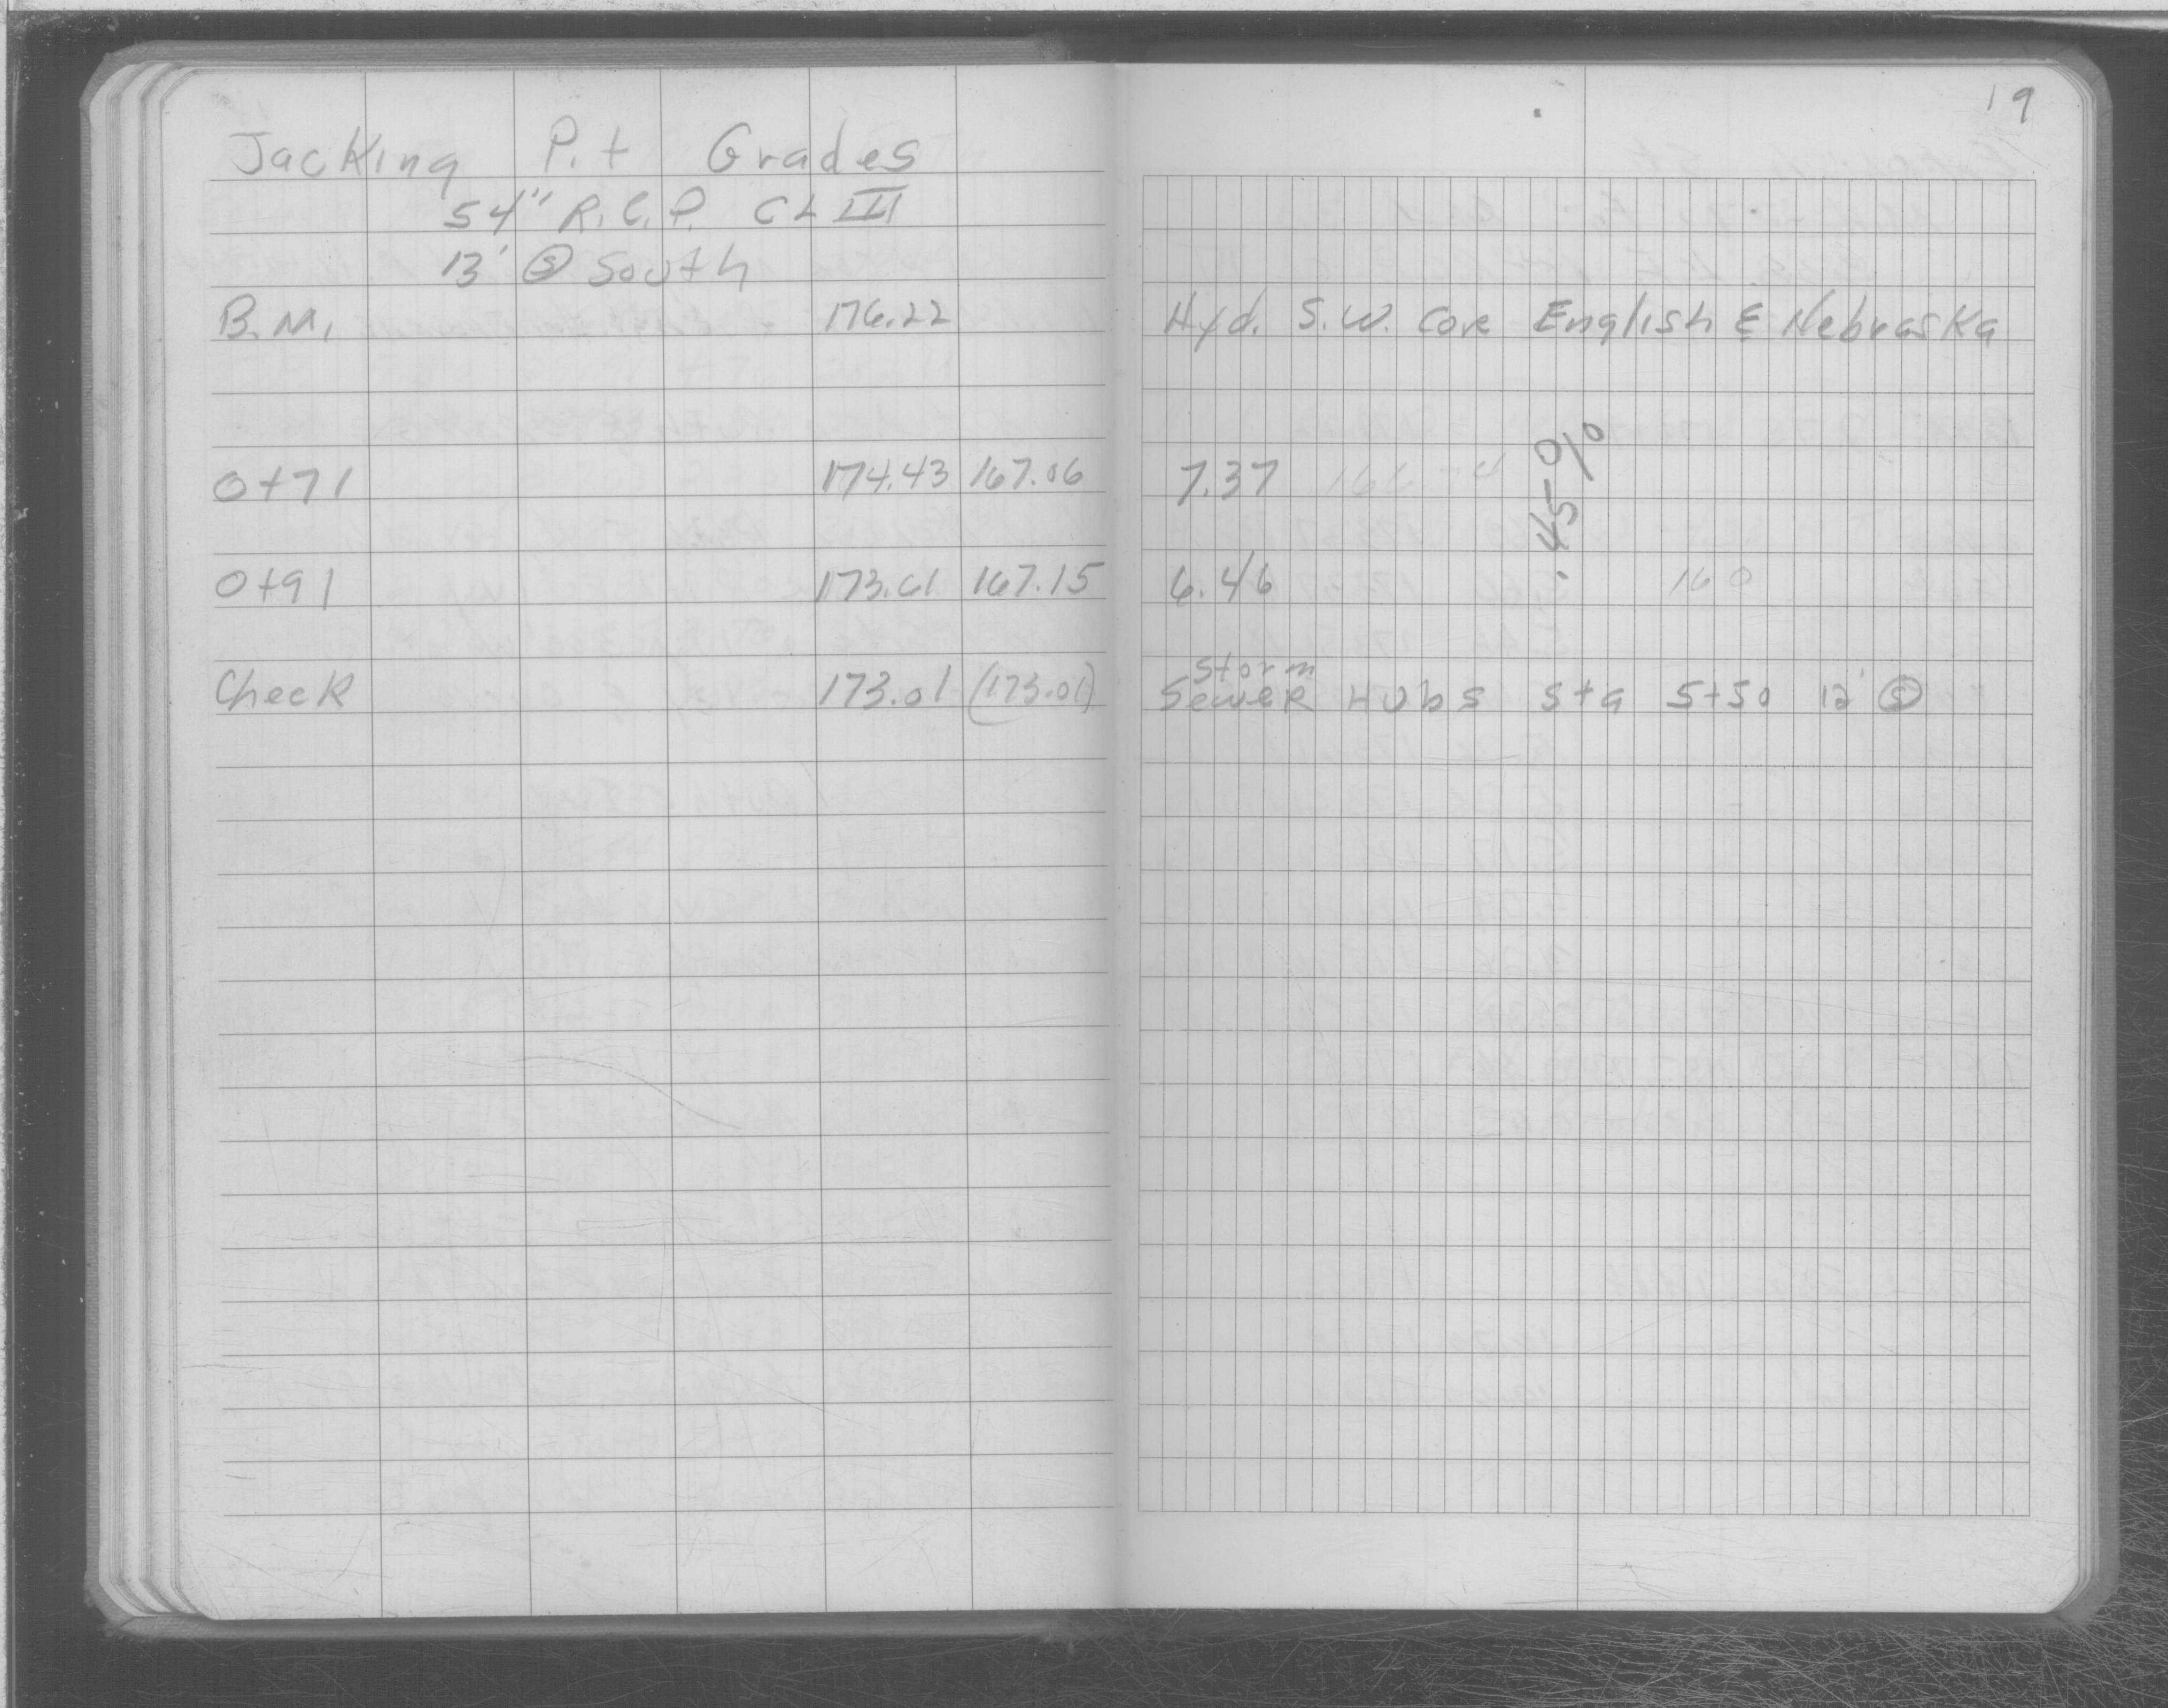 19
Jacking Pit Grades
54" R.C.P. CL III
13' Ⓢ South
B.M. 176.22 Hyd. S.W. Cor English & Nebraska
0+71 174.43 167.06 7.37
.45%
0+91 173.61 167.15 6.46
Storm
Check 173.01 (173.01) Sewer Hubs Sta 5+50 12' Ⓢ